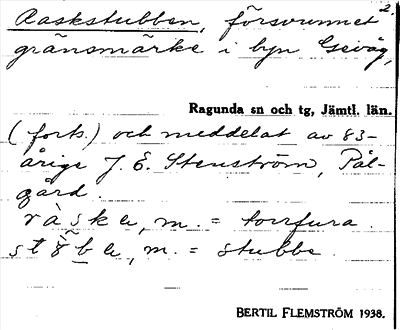 2.
Raskstubben, försvunnet
gränsmärke i byn Gevåg,
Ragunda sn och tg, Jämtl. län.
(forts.) och meddelat av 83-
årige J. E. Stenström, Pål-
gård.
ràske, m. = torrfura.
st8̃be, m. = stubbe.
BERTIL FLEMSTRÖM 1938.